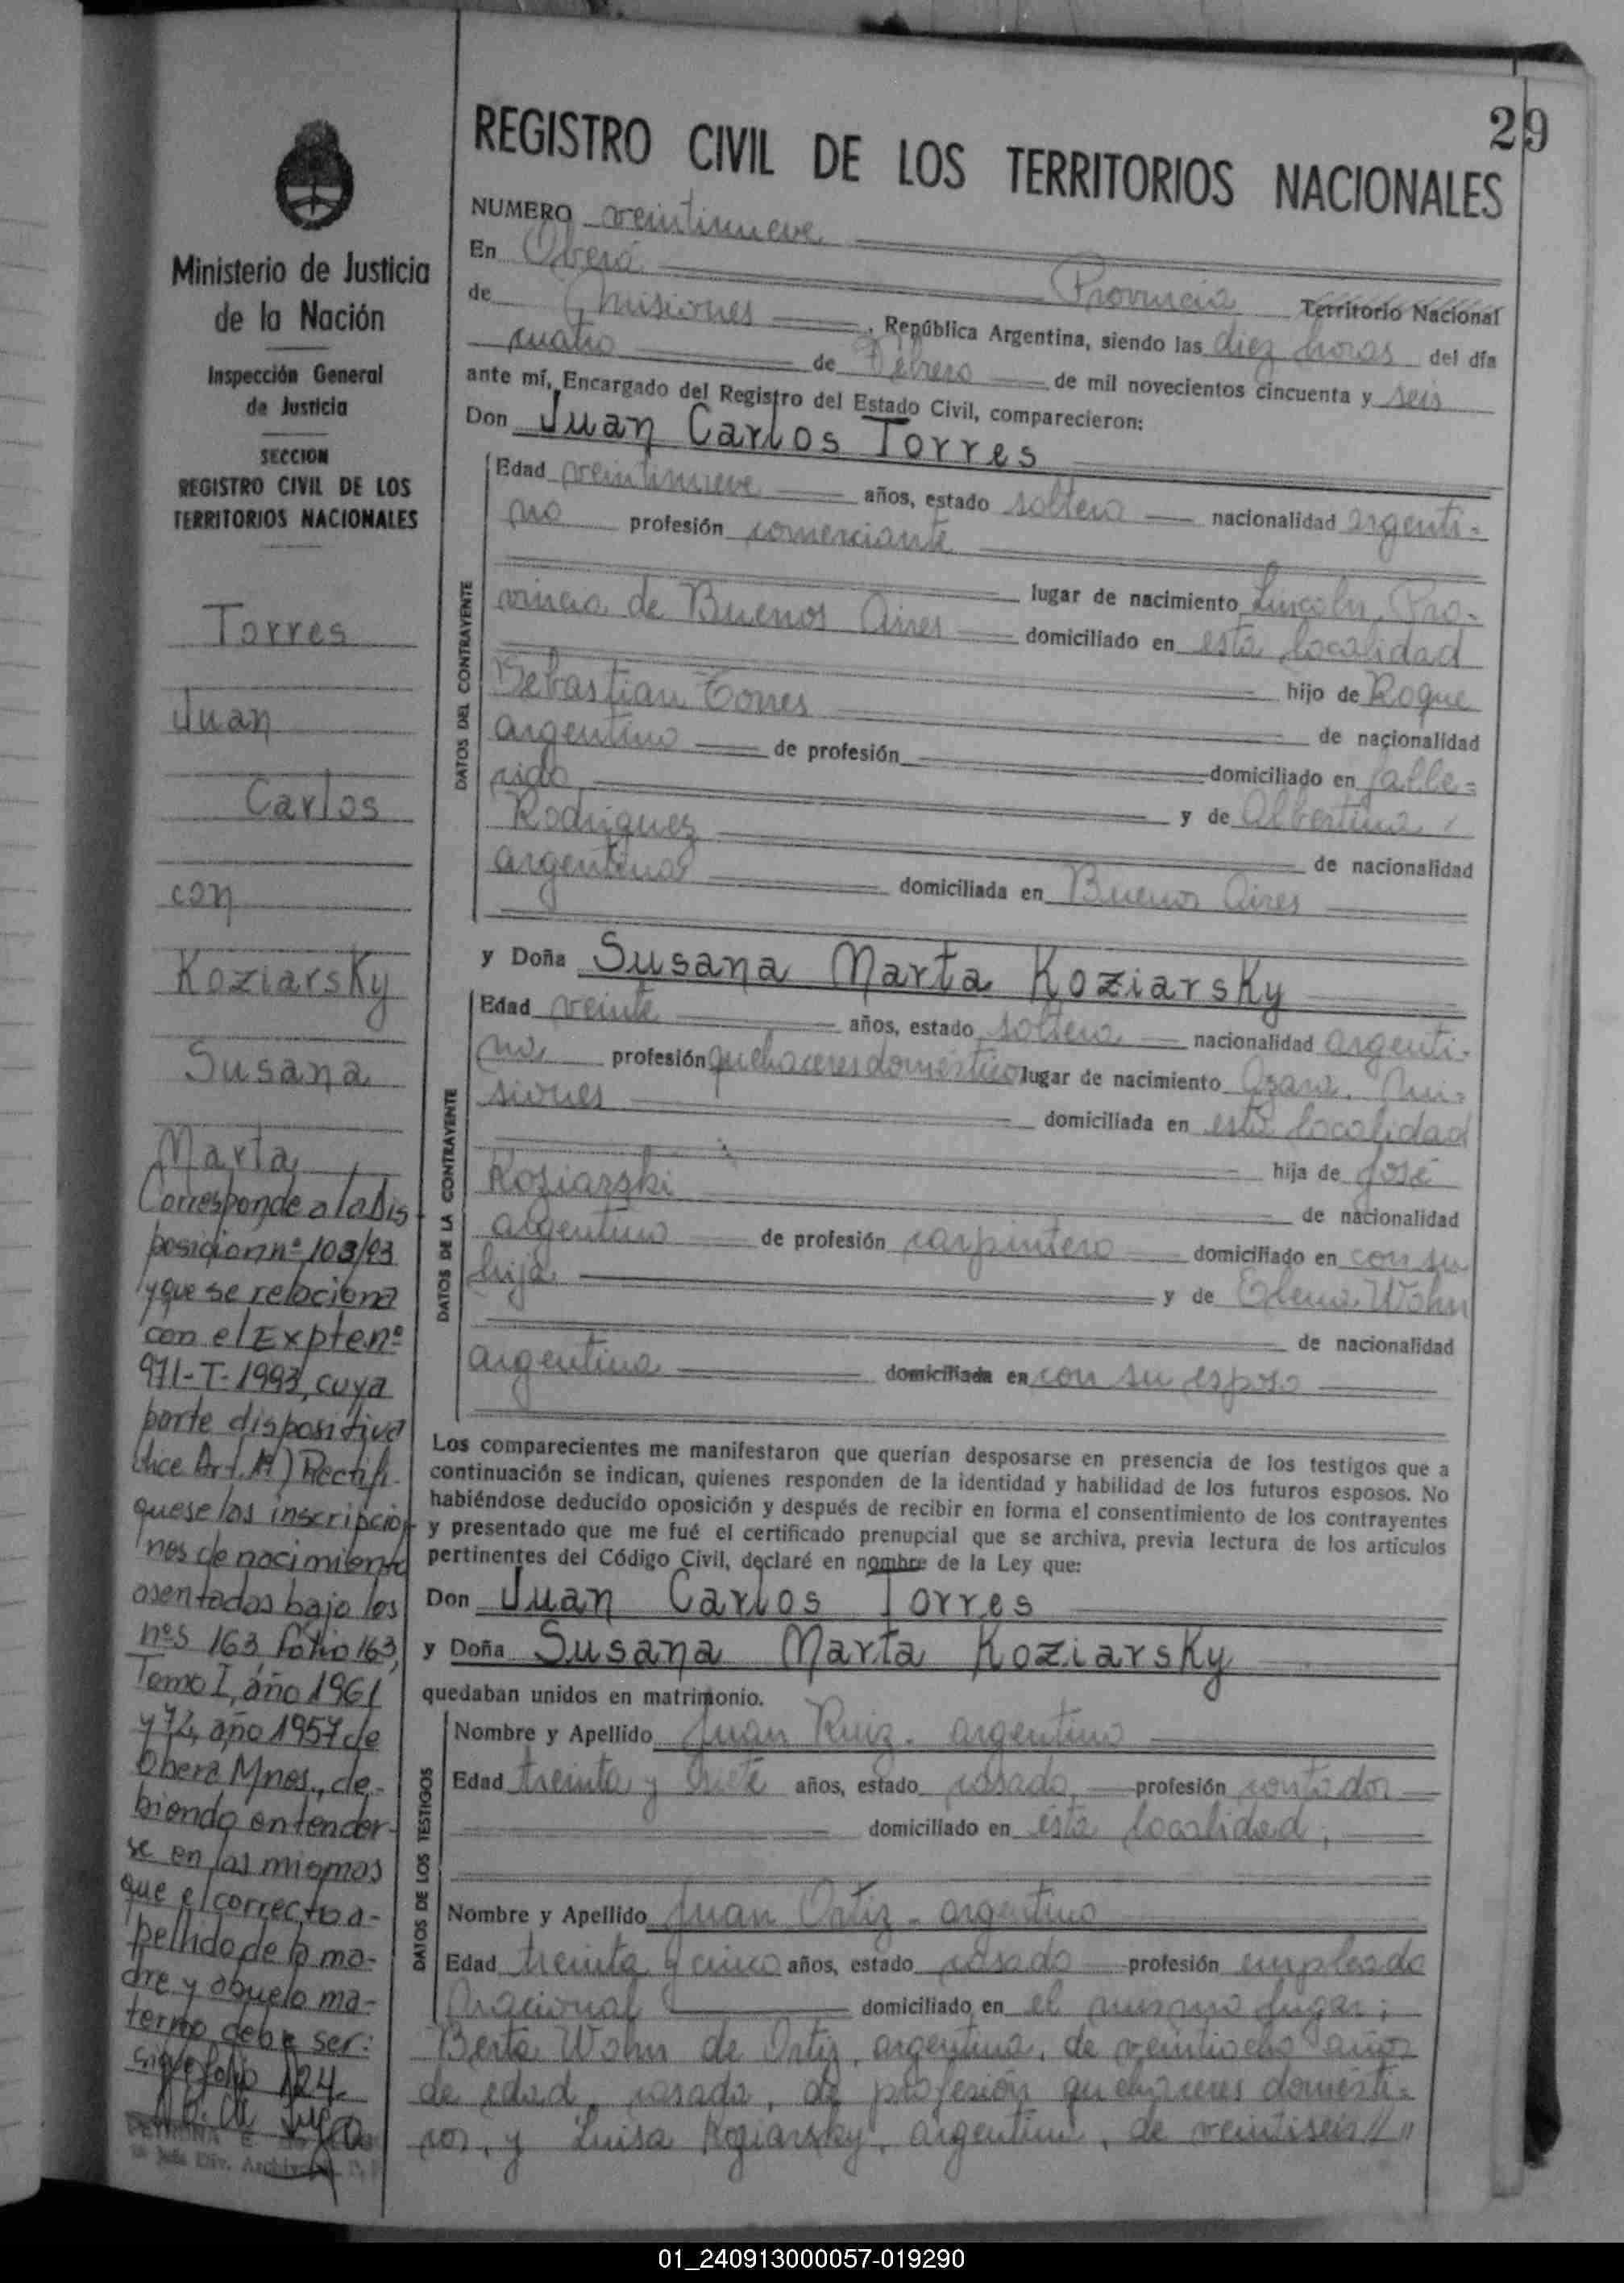 29
REGISTRO CIVIL DE LOS TERRITORIOS NACIONALES
Ministerio de Justicia
de la Nación
Inspección General
de Justicia
SECCION
REGISTRO CIVIL DE LOS
TERRITORIOS NACIONALES
Torres
Juan
Carlos
con
Koziarsky
Susana
Marta
Corresponde a la Dis
posicion nº 103/93
y que se relaciona
con el Expte nº
971-T-1993, cuya
parte dispositiva
dice Art. 1º) Rectifi-
quese las inscripcio
nes de nacimiento
asentadas bajo los
nºs 163, folio 163,
Tomo I, año 1961
y 74, año 1957 de
Oberá Mnes., de-
biendo entender-
se en las mismas
que el correcto a-
pellido de la ma-
dre y abuelo ma-
terno debe ser:
sigue folio 124.
NUMERO veintinueve
En Oberá
de Misiones Provincia Territorio Nacional
, República Argentina, siendo las diez horas del día
cuatro de Febrero de mil novecientos cincuenta y seis
ante mí, Encargado del Registro del Estado Civil, comparecieron:
Don Juan Carlos Torres
DATOS DEL CONTRAYENTE
Edad veintinueve años, estado soltero nacionalidad argenti-
no profesión comerciante
lugar de nacimiento Lincoln, Pro-
vincia de Buenos Aires domiciliado en esta localidad
hijo de Roque
Sebastian Torres de nacionalidad
argentino de profesión domiciliado en falle-
cido y de Albertina
Rodriguez de nacionalidad
argentina domiciliada en Buenos Aires
y Doña Susana Marta Koziarsky
DATOS DE LA CONTRAYENTE
Edad veinte años, estado soltera nacionalidad argenti-
na profesión quehaceres doméstico lugar de nacimiento Azara, Mi-
siones domiciliada en esta localidad
hija de José
Koziarski de nacionalidad
argentino de profesión carpintero domiciliado en con su
hija y de Elena Wohn
de nacionalidad
argentina domiciliada en con su esposo
Los comparecientes me manifestaron que querían desposarse en presencia de los testigos que a
continuación se indican, quienes responden de la identidad y habilidad de los futuros esposos. No
habiéndose deducido oposición y después de recibir en forma el consentimiento de los contrayentes
y presentado que me fué el certificado prenupcial que se archiva, previa lectura de los artículos
pertinentes del Código Civil, declaré en nombre de la Ley que:
Don Juan Carlos Torres
y Doña Susana Marta Koziarsky
quedaban unidos en matrimonio.
DATOS DE LOS TESTIGOS
Nombre y Apellido Juan Ruiz. argentino
Edad treinta y siete años, estado casado, profesión contador
domiciliado en esta localidad;
Nombre y Apellido Juan Ortiz - argentino
Edad treinta y cinco años, estado casado profesión empleado
nacional domiciliado en el mismo lugar;
Berta Wohn de Ortiz, argentina, de veintiocho años
de edad, casada, de profesión quehaceres domésti-
cos, y Luisa Koziarsky, argentina, de veintiseis//"
01_240913000057-019290